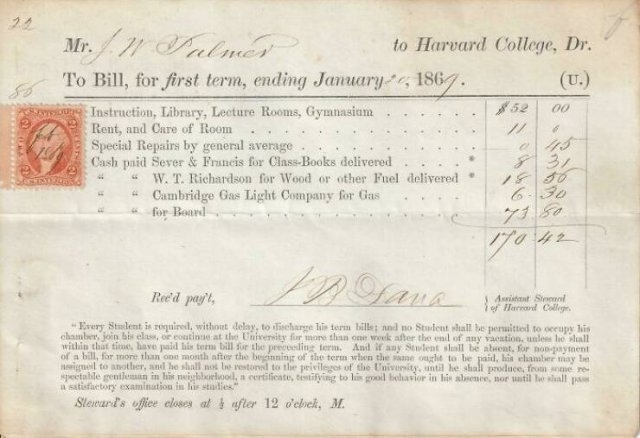 22
Mr. J. W. Palmer to Harvard College, Dr.
86
To Bill, for first term, ending January 20, 1869. (U.)
Instruction, Library, Lecture Rooms, Gymnasium . . . . . $52 00
Rent, and Care of Room . . . . . . . . . . . 11 0
Special Repairs by general average . . . . . . . . . 0 45
Cash paid Sever & Francis for Class-Books delivered . . . . * 8 31
“ “ W. T. Richardson for Wood or other Fuel delivered * 18 56
“ “ Cambridge Gas Light Company for Gas . . . . 6 30
“ “ for Board . . . . . . . . . . . . . 73 80
170 42
Rec'd pay't, J B Dana { Assistant Steward
{ of Harvard College.
“Every Student is required, without delay, to discharge his term bills; and no Student shall be permitted to occupy his
chamber, join his class, or continue at the University for more than one week after the end of any vacation, unless he shall
within that time, have paid his term bill for the preceeding term. And if any Student shall be absent, for non-payment
of a bill, for more than one month after the beginning of the term when the same ought to be paid, his chamber may be
assigned to another, and he shall not be restored to the privileges of the University, until he shall produce, from some re-
spectable gentleman in his neighborhood, a certificate, testifying to his good behavior in his absence, nor until he shall pass
a satisfactory examination in his studies.”
Steward's office closes at ½ after 12 o'clock, M.